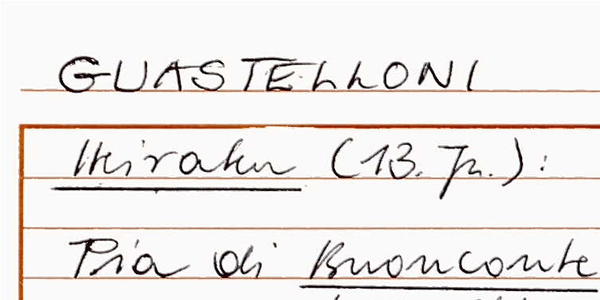 GUASTELLONI
Heiraten (13. Jh.):
Pia di Buonconte